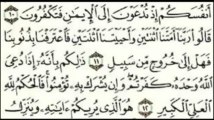 أَنفُسَكُمْ إِذْ تُدْعَوْنَ إِلَى ٱلْإِيمَٰنِ فَتَكْفُرُونَ ١٠
قَالُوا۟ رَبَّنَآ أَمَتَّنَا ٱثْنَتَيْنِ وَأَحْيَيْتَنَا ٱثْنَتَيْنِ فَٱعْتَرَفْنَا بِذُنُوبِنَا
فَهَلْ إِلَىٰ خُرُوجٍ مِّن سَبِيلٍ ١١ ذَٰلِكُم بِأَنَّهُۥٓ إِذَا دُعِىَ
ٱللَّهُ وَحْدَهُۥ كَفَرْتُمْ وَإِن يُشْرَكْ بِهِۦ تُؤْمِنُوا۟ فَٱلْحُكْمُ لِلَّهِ
ٱلْعَلِىِّ ٱلْكَبِيرِ ١٢ هُوَ ٱلَّذِى يُرِيكُمْ ءَايَٰتِهِۦ وَيُنَزِّلُ